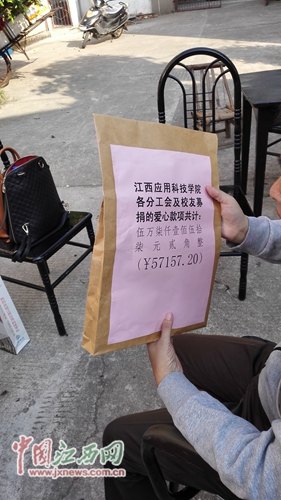 江西应用科技学院
各分工会及校友募
捐的爱心款项共计:
伍万柒仟壹佰伍拾
柒元贰角整
(¥57157.20)
中国江西网
www.jxnews.com.cn